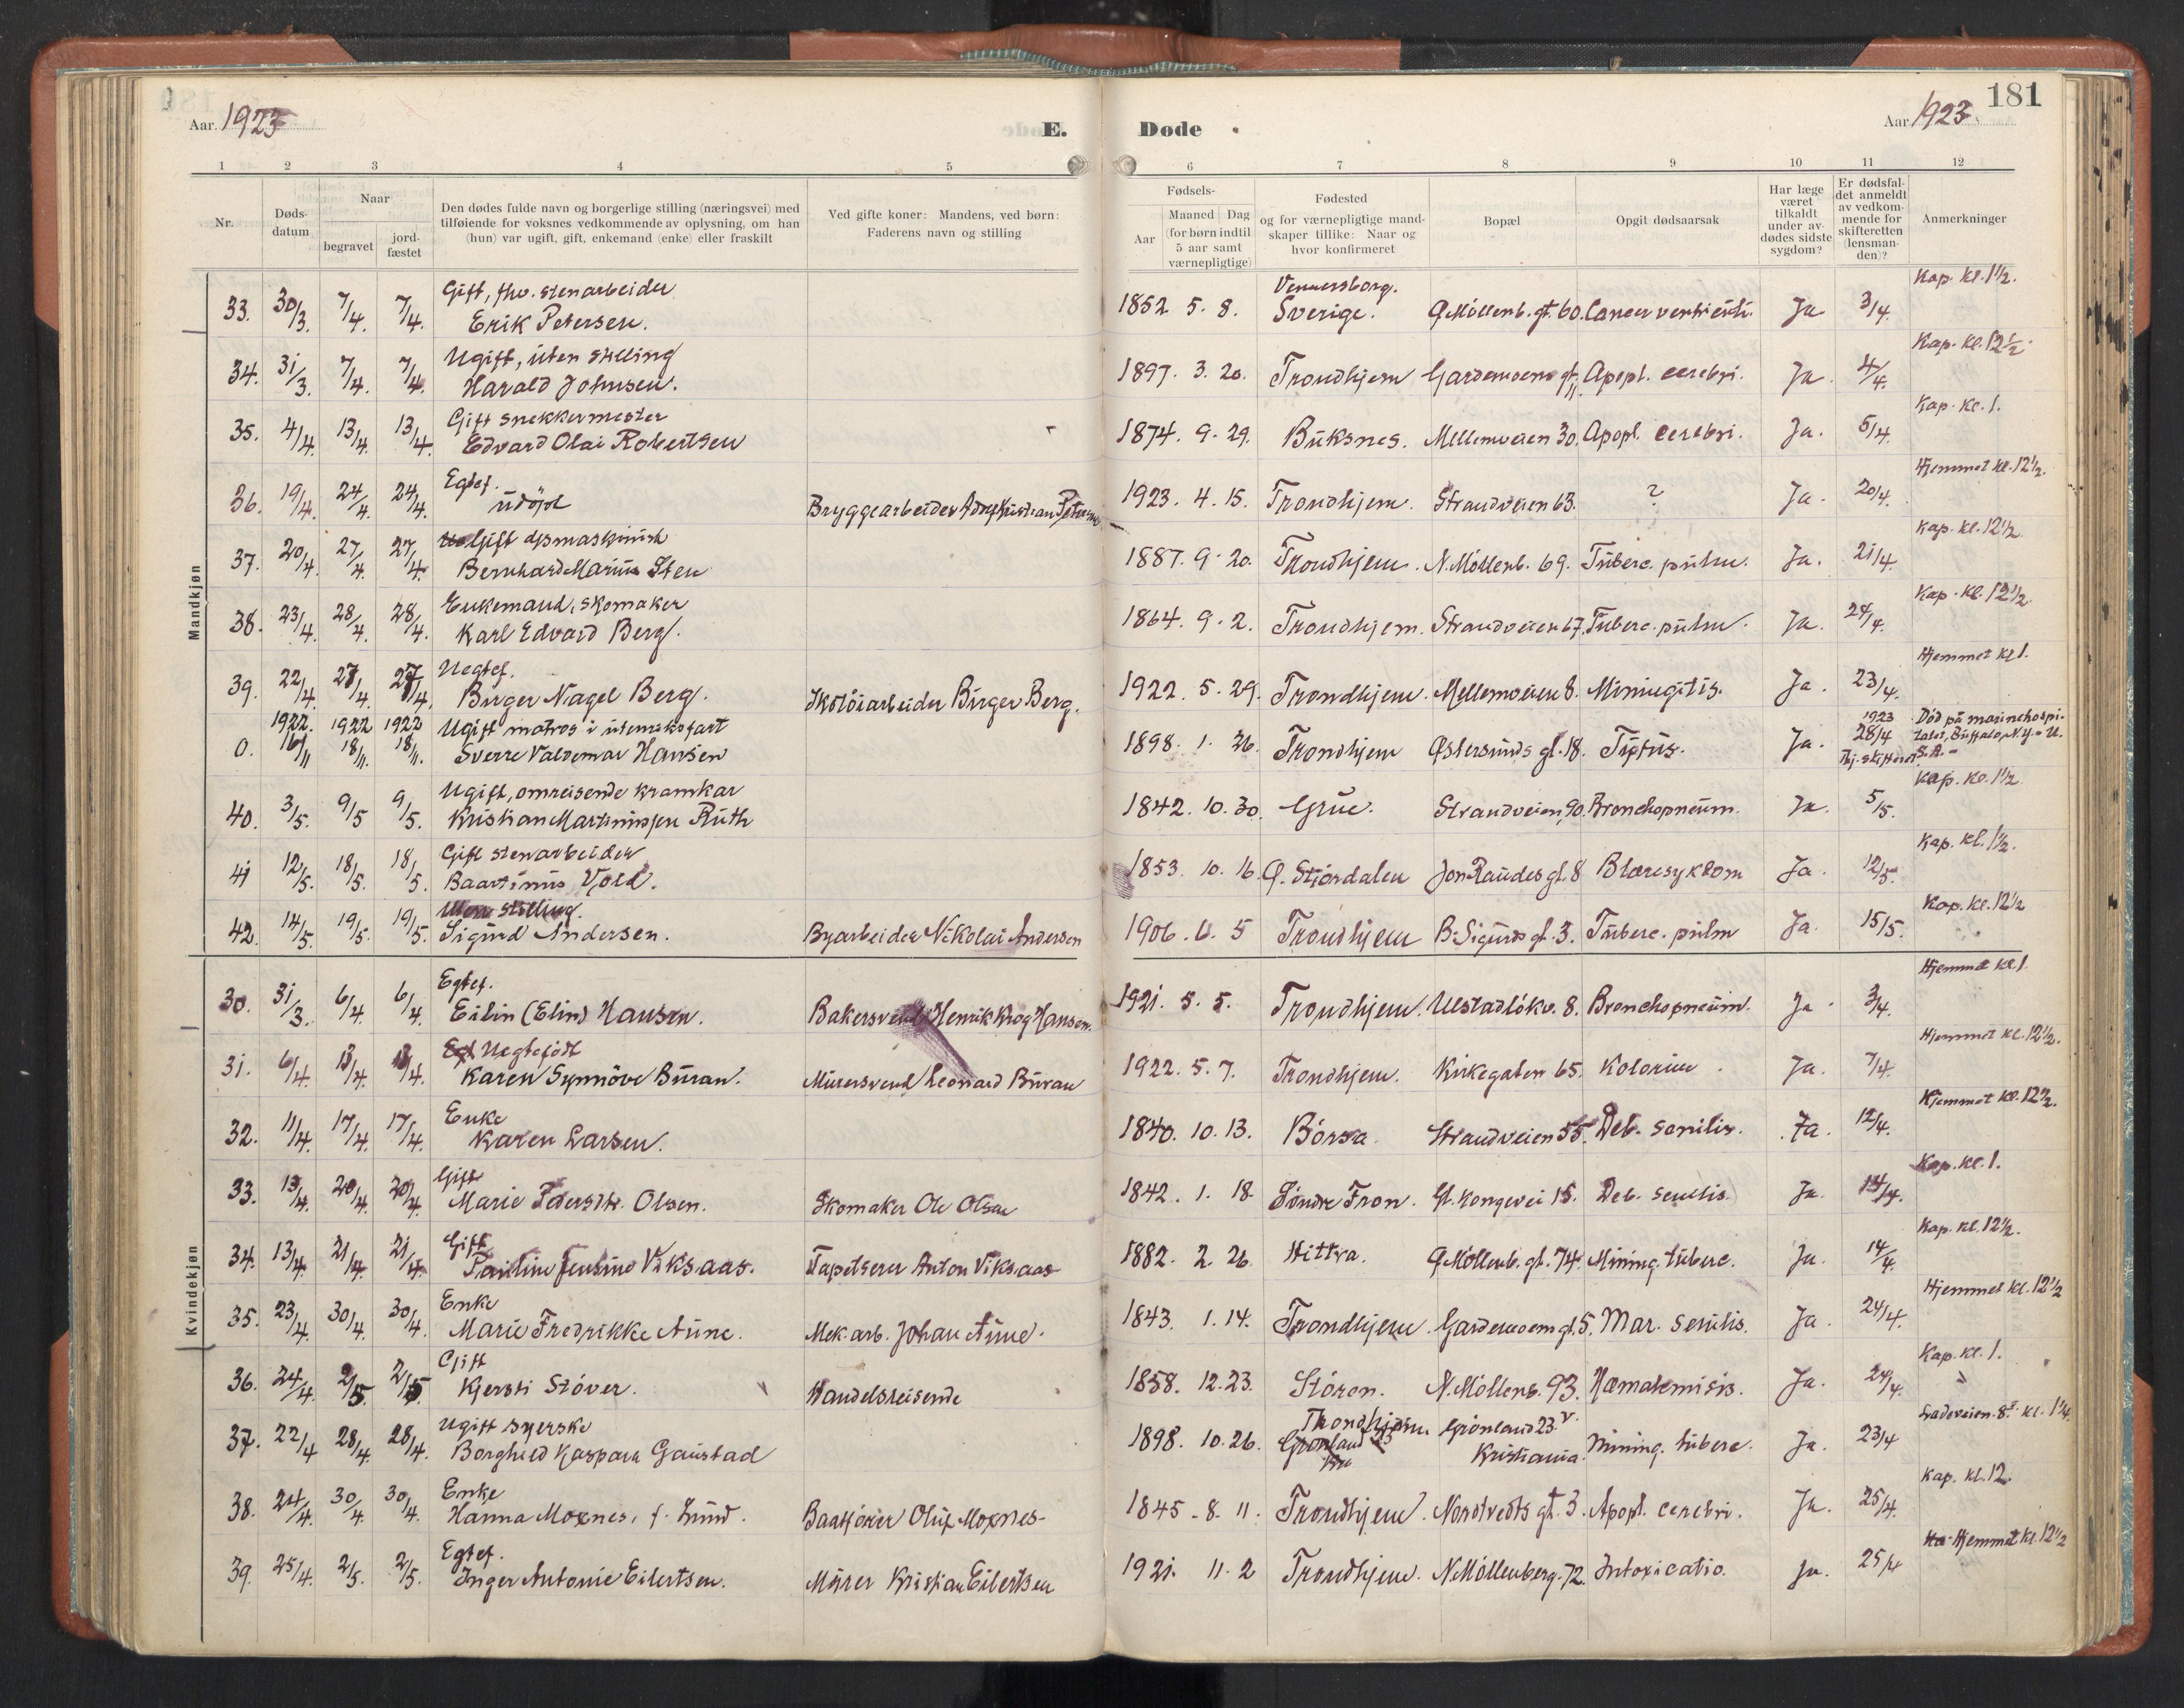 181
Aar 1923 E. Døde Aar 1923.
1 2 3 4 5 6 7 8 9 10 11 12
Nr. Døds-datum Naar begravet jord-fæstet Den dødes fulde navn og borgerlige stilling (næringsvei) med tilføiende for voksnes vedkommende av oplysning, om han (hun) var ugift, gift, enkemand (enke) eller fraskilt Ved gifte koner: Mandens, ved børn: Faderens navn og stilling Fødsels- Aar Maaned Dag (for børn indtil 5 aar samt værnepligtige) Fødested og for værnepligtige mandskaper tillike: Naar og hvor konfirmeret Bopæl Opgit dødsaarsak Har læge været tilkaldt under avdødes sidste sygdom? Er dødsfaldet anmeldt av vedkommende for skifteretten (lensmanden)? Anmerkninger
Mandkjøn
33. 30/3. 7/4. 7/4. Gift, fhv. stenarbeider Erik Petersen. 1852 5. 8. Vennersborg. Sverige. Ø. Möllenb. gt. 60. Cancer ventriculi. Ja 3/4. Kap. kl. 1 1/2.
34. 31/3. 7/4. 7/4. Ugift, uten stilling Harald Johnsen. 1897. 3. 20. Trondhjem Gardemoens gt. 11 Apopl. cerebri. Ja. 4/4. Kap. kl. 12 1/2.
35. 4/4. 13/4. 13/4. Gift snekkermester Edvard Olai Robertsen 1874. 9. 29. Buksnes. Mellemveien 30. Apopl. cerebri. Ja. 5/4. Kap. kl. 1.
36. 19/4. 24/4. 24/4. Egtef. udöpt Bryggearbeider Kristian Petersen 1923. 4. 15. Trondhjem. Strandveien 63. ? Ja. 20/4. Hjemmet kl. 12 1/2.
37. 20/4. 27/4. 27/4. Gift dpmaskinist Bernhard Marius Sten 1887. 9. 20. Trondhjem. N. Möllenb. 69. Tuberc. pulm. Ja. 21/4. Kap. kl. 12 1/2.
38. 23/4. 28/4. 28/4. Enkemand, skomaker Karl Edvard Berg. 1864. 9. 2. Trondhjem. Strandveien 67. Tuberc. pulm. Ja. 24/4. Kap. kl. 12 1/2.
39. 22/4. 27/4. 27/4. Uegtef. Birger Nagel Berg. Skotöiarbeider Birger Berg. 1922. 5. 29. Trondhjem. Mellemveien 8. Miningitis. Ja. 23/4. Hjemmet kl. 1.
0. 1922. 16/11 1922 18/11. 1922 18/11. Ugift matros i utenriksfart Sverre Valdemar Hansen 1898. 1. 26. Trondhjem Østersunds gt. 18. Tyfus. Ja. 1923 28/4 Tj. skifteret. Död på marinehospitalet, Buffalo, N.Y. - U.S.A. -
40. 3/5. 9/5 9/5. Ugift, omreisende kramkar Kristian Martinussen Ruth 1842. 10. 30. Grue. Strandveien, 90. Bronchopneum. Ja. 5/5. Kap. kl. 1 1/2
41 12/5. 18/5. 18/5. Gift stenarbeider Baartinus Vold. 1853. 10. 16. Ø. Stjördalen Jon Raudes gt. 8 Blæresykdom Ja. 12/5. Kap. kl. 1 1/2.
42. 14/5. 19/5. 19/5. Uten stilling. Sigurd Andersen. Byarbeider Nikolai Andersen 1906. 6. 5 Trondhjem B. Sigurds gt. 3. Tuberc. pulm Ja. 15/5. Kap. kl. 12 1/2
Kvindekjøn
30. 31/3. 6/4. 6/4. Egtef. Eilin (Elin) Hansen. Bakersvend Henrik Krog Hansen. 1921. 5. 5. Trondhjem. Ulstadlökv. 8. Bronchopneum. Ja. 3/4. Hjemmet kl. 1.
31. 6/4. 13/4. 13/4. Uegtefödt Karen Synnöve Buran. Murersvend Leonard Buran 1922. 5. 7. Trondhjem. Kirkegaten 65. Kolerine. Ja. 7/4. Hjemmet kl. 12 1/2.
32. 11/4. 17/4. 17/4. Enke Karen Larsen. 1840. 10. 13. Börsa. Strandveien 55. Deb. senilis. Ja. 12/4. Hjemmet kl. 12 1/2.
33. 13/4. 20/4. 20/4. Gift Marie Pedersdtr. Olsen. Skomaker Ole Olsen 1842. 1. 18. Söndre Fron. Gl. kongevei 15. Deb. senilis. Ja. 14/4. Kap. kl. 1.
34. 13/4. 21/4. 21/4. Gift Pauline Jensine Viksaas. Tapetserer Anton Viksaas 1882. 2. 26. Hittra. Ø. Möllenb. gt. 74. Mining. tuberc. Ja. 14/4. Kap. kl. 12 1/2.
35. 23/4. 30/4. 30/4. Enke Marie Fredrikke Aune. Mek. arb. Johan Aune. 1843. 1. 14. Trondhjem. Gardemoens gt. 5. Mar. senilis. Ja. 24/4. Hjemmet kl. 12 1/2
36. 24/4. 2/5. 2/5. Gift Kjersti Stöver. Handelsreisende 1858. 12. 23. Stören. N. Möllenb. 93. Hæmatemisis. Ja. 24/4. Kap. kl. 1.
37. 22/4 28/4. 28/4. Ugift syerske Borghild Kaspara Gaustad 1898. 10. 26. Trondhjem. Grönland 23 V. Kristiania. Mining. tuberc. Ja. 23/4 Ladeveien 8 kl. 1 1/4.
38. 24/4. 30/4. 30/4. Enke Hanna Moxnes, f. Lund. Baatfører Oluf Moxnes. 1845. 8. 11. Trondhjem. Nordtvedts gt. 3. Apopl. cerebri. Ja. 25/4. Kap. kl. 12.
39. 25/4. 2/5. 2/5. Egtef. Inger Antonie Eilertsen. Murer Kristian Eilertsen 1921. 11. 2 Trondhjem. N. Möllenberg. 72. Intoxicatio. Ja. 25/4 Hjemmet kl. 12 1/2